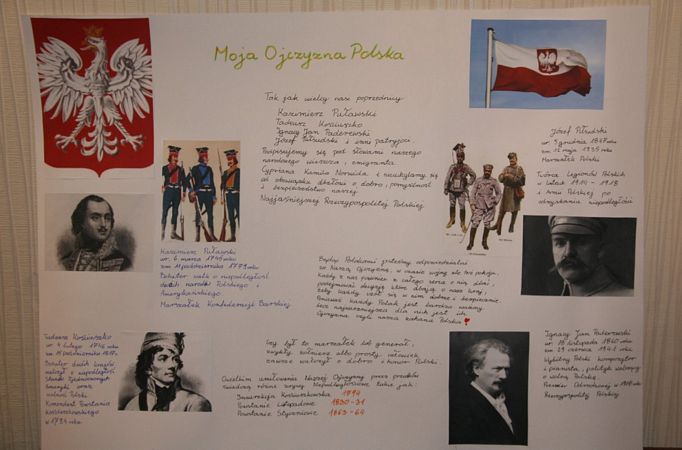 Moja Ojczyzna Polska
Tak jak wielcy nasi poprzednicy
Kazimierz Puławski
Tadeusz Kościuszko
Ignacy Jan Paderewski
Józef Piłsudski i inni patrioci.
Podpisujemy się pod słowami naszego
narodowego wieszcza, emigranta
Cypriana Kamila Norwida, i
od obowiązku dbałości o dobro, pomyślność
i bezpieczeństwo naszej
Najjaśniejszej Rzeczypospolitej Polskiej
Józef Piłsudski
ur. 5 grudnia 1867 roku
zm. 12 maja 1935 roku
Marszałek Polski
Twórca Legionów Polskich
w latach 1914 - 1918
i Armii Polskiej po
odzyskaniu niepodległości
Kazimierz Puławski
ur. 6 marca 1745 roku
zm. 11 października 1779 roku
Bohater walk o niepodległość
dwóch narodów Polskiego i
Amerykańskiego
Marszałek Konfederacji Barskiej
Będąc Polakami jesteśmy odpowiedzialni
za Naszą Ojczyznę, w czasie wojny ale też pokoju.
Każdy z nas powinien z całego serca o nią dbać,
podejmować decyzje które dbają o nasz kraj,
żeby każdy czuł się w nim dobrze i bezpiecznie.
Ponieważ każdy Polak jest bardzo ważny,
lecz najważniejsza dla nich jest ich
Ojczyzna czyli nasza kochana Polska!
Tadeusz Kościuszko
ur. 4 lutego 1746 roku
zm. 15 października 1817r.
Bohater dwóch krajów
walczył o niepodległość
Stanów Zjednoczonych
Ameryki oraz
wolność Polski
Komendant Powstania
Kościuszkowskiego
w 1794 roku
Czy był to marszałek lub generał,
zwykły żołnierz albo prosty człowiek
zawsze walczył o dobro i honor Polski.
Wielkim umiłowaniem Naszej Ojczyzny przez przodków
świadczą różne wojny Niepodległościowe takie jak:
Insurekcja Kościuszkowska 1794
Powstanie Listopadowe 1830-31
Powstanie Styczniowe 1863-64
Ignacy Jan Paderewski
ur. 18 listopada 1860 roku
zm. 29 czerwca 1941 roku
Wybitny Polski kompozytor
i pianista, polityk walczący
o wolną Polskę
Premier Odrodzonej w 1918 roku
Rzeczypospolitej Polskiej